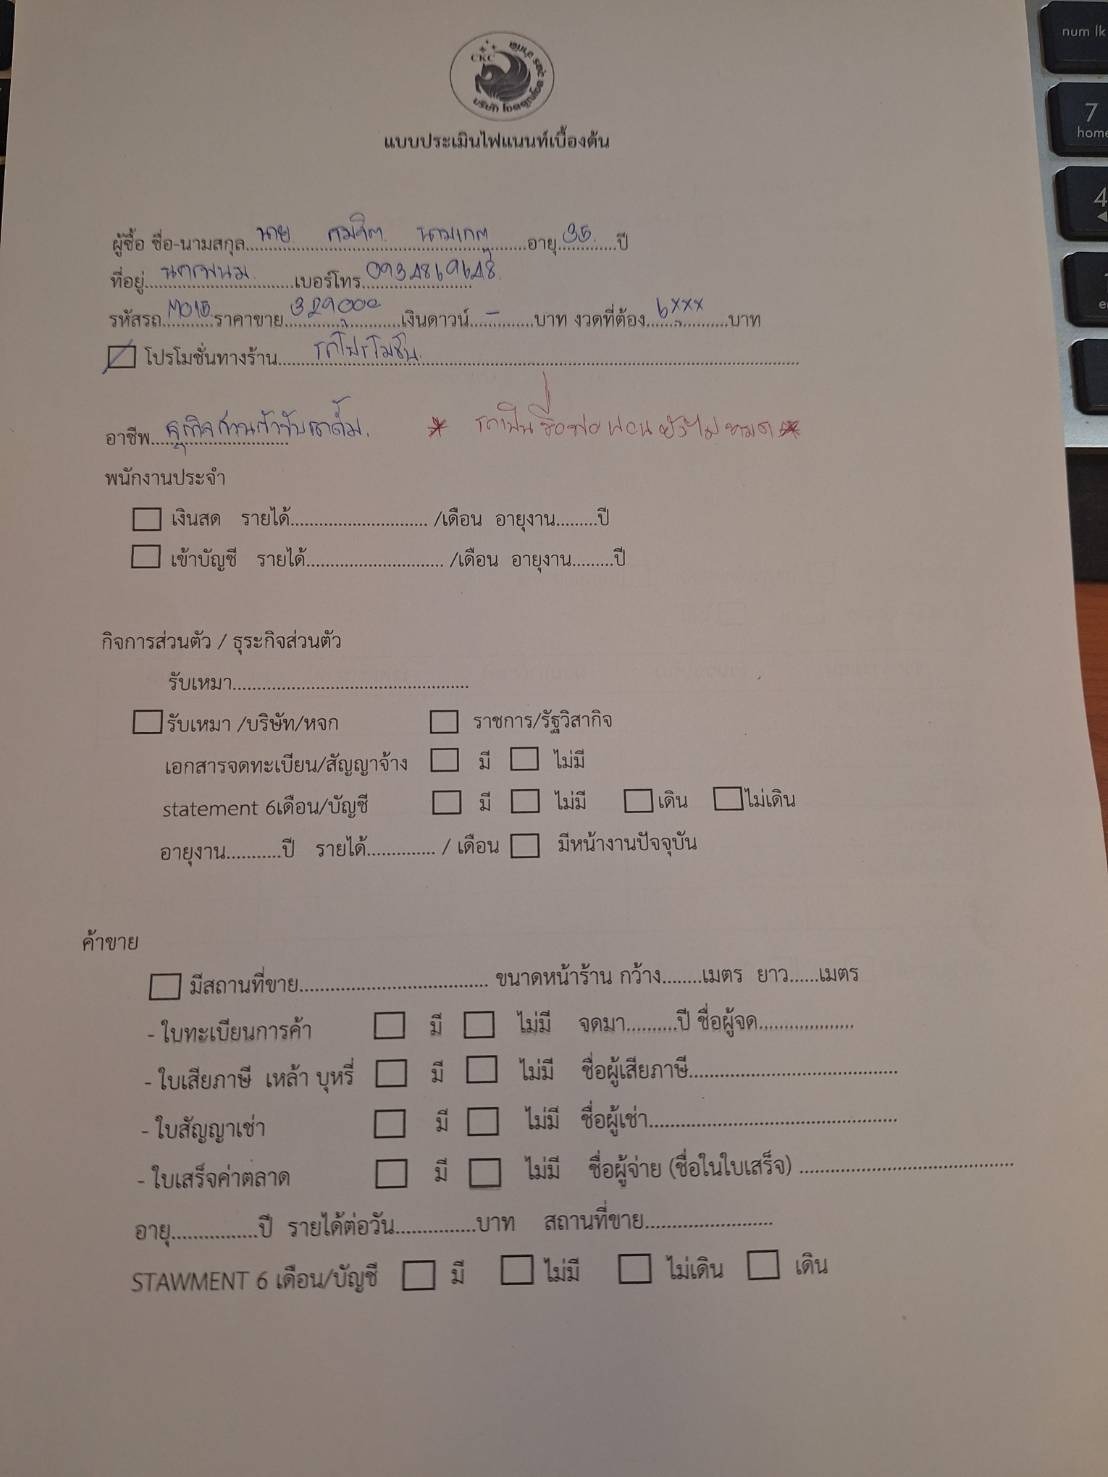 CKC
แบบประเมินไฟแนนท์เบื้องต้น
ผู้ซื้อ ชื่อ-นามสกุล นาย สมจิต นามเกตุ อายุ 35 ปี
ที่อยู่ นครพนม เบอร์โทร 0934869648
รหัสรถ M015 ราคาขาย 329000 เงินดาวน์ - บาท งวดที่ต้อง 6xxx บาท
โปรโมชั่นทางร้าน รถโปรโมชั่น
อาชีพ
* รถเป็นชื่อพ่อ ผ่อนยังไม่หมด *
พนักงานประจำ
เงินสด รายได้ /เดือน อายุงาน ปี
เข้าบัญชี รายได้ /เดือน อายุงาน ปี
กิจการส่วนตัว / ธุระกิจส่วนตัว
รับเหมา
รับเหมา /บริษัท/หจก ราชการ/รัฐวิสากิจ
เอกสารจดทะเบียน/สัญญาจ้าง มี ไม่มี
statement 6เดือน/บัญชี มี ไม่มี เดิน ไม่เดิน
อายุงาน ปี รายได้ / เดือน มีหน้างานปัจจุบัน
ค้าขาย
มีสถานที่ขาย ขนาดหน้าร้าน กว้าง เมตร ยาว เมตร
- ใบทะเบียนการค้า มี ไม่มี จดมา ปี ชื่อผู้จด
- ใบเสียภาษี เหล้า บุหรี่ มี ไม่มี ชื่อผู้เสียภาษี
- ใบสัญญาเช่า มี ไม่มี ชื่อผู้เช่า
- ใบเสร็จค่าตลาด มี ไม่มี ชื่อผู้จ่าย (ชื่อในใบเสร็จ)
อายุ ปี รายได้ต่อวัน บาท สถานที่ขาย
STAWMENT 6 เดือน/บัญชี มี ไม่มี ไม่เดิน เดิน
num lk
7
home
4